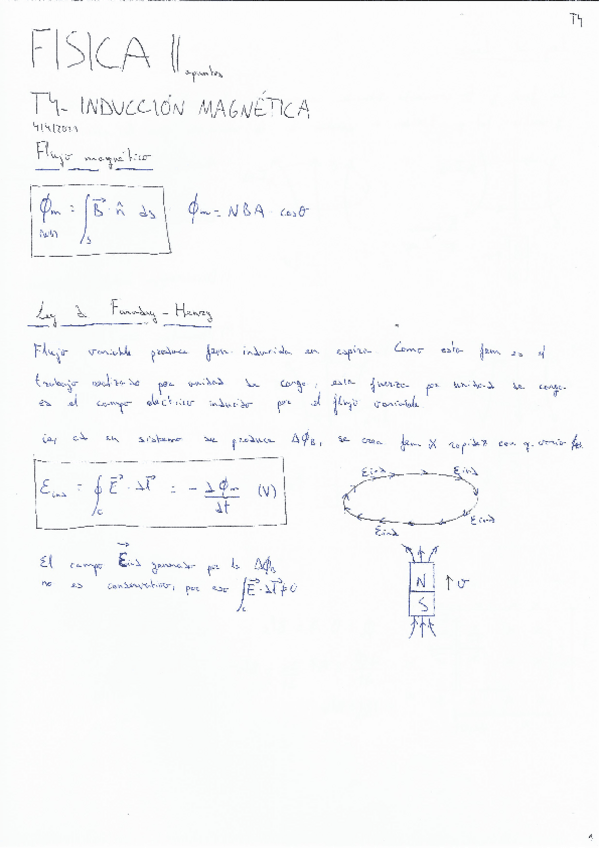 T4
FISICA II apuntes
T4- INDUCCIÓN MAGNÉTICA
Flujo magnético
ϕm = ∫s B⃗ · n̂ ds ϕm = NBA · cosθ
Ley d Faraday-Henry
Flujo variable produce fem inducida en espira. Como esta fem es el
trabajo realizado por unidad de carga, esta fuerza por unidad de carga
es el campo eléctrico inducido por el flujo variable.
en sistema se produce ΔϕB, se crea fem x rapidez con q. varía
Eind = ∮c E⃗ · dl⃗ = - dϕm/dt (V)
Eind Eind
Eind
Eind
El campo E⃗ind generado por la ΔϕB
no es conservativo, por eso ∫c E⃗ · dl⃗ ≠ 0
N
↑ v
S